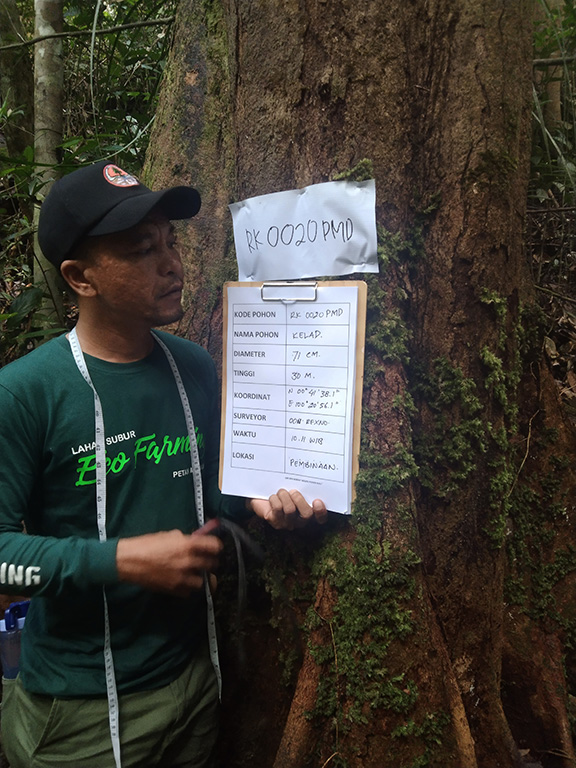 RK 0020 PMD
KODE POHON RK 0020 PMD
NAMA POHON KELAD.
DIAMETER 71 CM.
TINGGI 30 M.
KOORDINAT N 00° 41' 38.1"
E 100° 20' 56.1"
SURVEYOR
WAKTU 10.11 WIB
LOKASI PEMBINAAN.
LAHAN SUBUR
Eco Farmin
PETA
ING